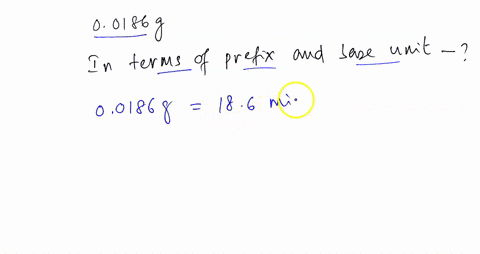 0.0186g
In terms of prefix and base unit -?
0.0186g = 18.6 mi